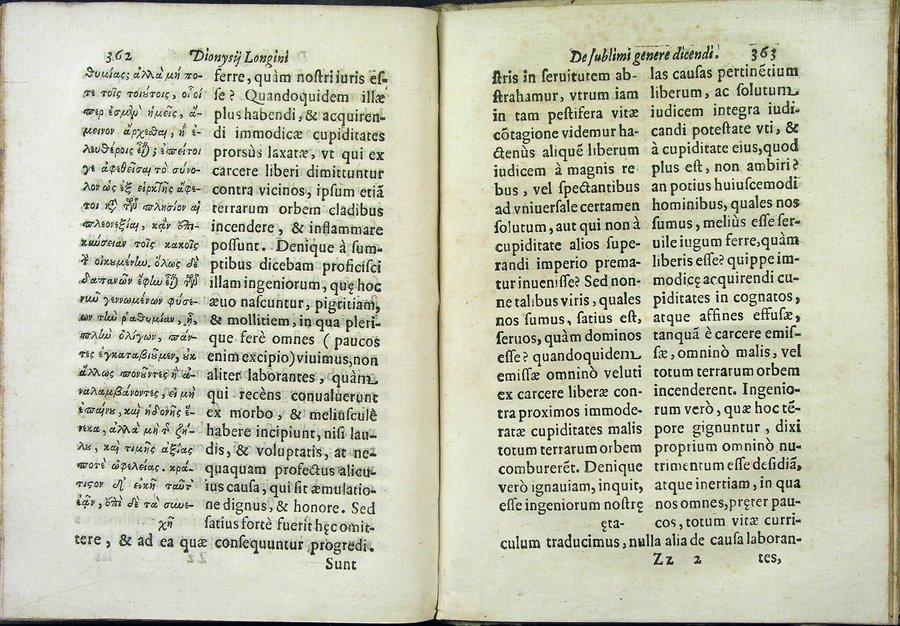 362 Dionysij Longini
θυμίας; ἀλλὰ μή πο-
τε τοῖς τοιούτοις, οἷοί
περ ἐσμὲν ἡμεῖς, ἄ-
μεινον ἄρχεσθαι, ἢ ἐ-
λευθέροις εἶναι; ἐπείτοι
γε ἀφεθεῖσαι τὸ σύνο-
λον ὡς ἐξ εἱρκτῆς ἄφε-
τοι κατὰ τῶν πλησίον αἱ
πλεονεξίαι, κἂν ἐπι-
καύσειαν τοῖς κακοῖς
τὴν οἰκουμένην. ὅλως δὲ
δαπανῶν ἔφην εἶναι τῶν
νῦν γεννωμένων φύσε-
ων τὴν ῥαθυμίαν, ᾗ,
πλὴν ὀλίγων, πάν-
τες ἐγκαταβιοῦμεν, οὐκ
ἄλλως πονοῦντες ἢ ἀ-
ναλαμβάνοντες, εἰ μὴ
ἐπαίνου, καὶ ἡδονῆς ἕ-
νεκα, ἀλλὰ μὴ τοῦ ζή-
λου, καὶ τιμῆς ἀξίας
ποτὲ ὠφελείας. κρά-
τιστον δὴ εἰκῆ ταῦτ'
ἐᾶν, ἐπὶ δὲ τὰ συνε-
χῆ
ferre, quàm nostri iuris es-
se? Quandoquidem illæ
plus habendi, & acquiren-
di immodicæ cupiditates
prorsùs laxatæ, vt qui ex
carcere liberi dimittuntur
contra vicinos, ipsum etiā
terrarum orbem cladibus
incendere, & inflammare
possunt. Denique à sum-
ptibus dicebam proficisci
illam ingeniorum, quę hoc
æuo nascuntur, pigritiam,
& mollitiem, in qua pleri-
que ferè omnes ( paucos
enim excipio) viuimus, non
aliter laborantes, quàm
qui recèns conualuerunt
ex morbo, & meliusculè
habere incipiunt, nisi lau-
dis, & voluptatis, at ne-
quaquam profectus alicu-
ius causa, qui sit æmulatio-
ne dignus, & honore. Sed
satius fortè fuerit hęc omit-
tere, & ad ea quæ consequuntur progredi.
Sunt
De sublimi genere dicendi. 363
stris in seruitutem ab-
strahamur, vtrum iam
in tam pestifera vitæ
cōtagione videmur ha-
ctenùs aliquē liberum
iudicem à magnis re
bus, vel spectantibus
ad vniuersale certamen
solutum, aut qui non à
cupiditate alios supe-
randi imperio prema-
tur inuenisse? Sed non-
ne talibus viris, quales
nos sumus, satius est,
seruos, quàm dominos
esse? quandoquidem
emissæ omninò veluti
ex carcere liberæ con-
tra proximos immode-
ratæ cupiditates malis
totum terrarum orbem
comburerēt. Denique
verò ignauiam, inquit,
esse ingeniorum nostrę
ęta-
las causas pertinētium
liberum, ac solutum
iudicem integra iudi-
candi potestate vti, &
à cupiditate eius, quod
plus est, non ambiri?
an potius huiuscemodi
hominibus, quales nos
sumus, meliùs esse ser-
uile iugum ferre, quàm
liberis esse? quippe im-
modicę acquirendi cu-
piditates in cognatos,
atque affines effusæ,
tanquā è carcere emis-
sæ, omninò malis, vel
totum terrarum orbem
incenderent. Ingenio-
rum verò, quæ hoc tē-
pore gignuntur, dixi
proprium omninò nu-
trimentum esse desidiā,
atque inertiam, in qua
nos omnes, pręter pau-
cos, totum vitæ curri-
culum traducimus, nulla alia de causa laboran-
Zz 2 tes,